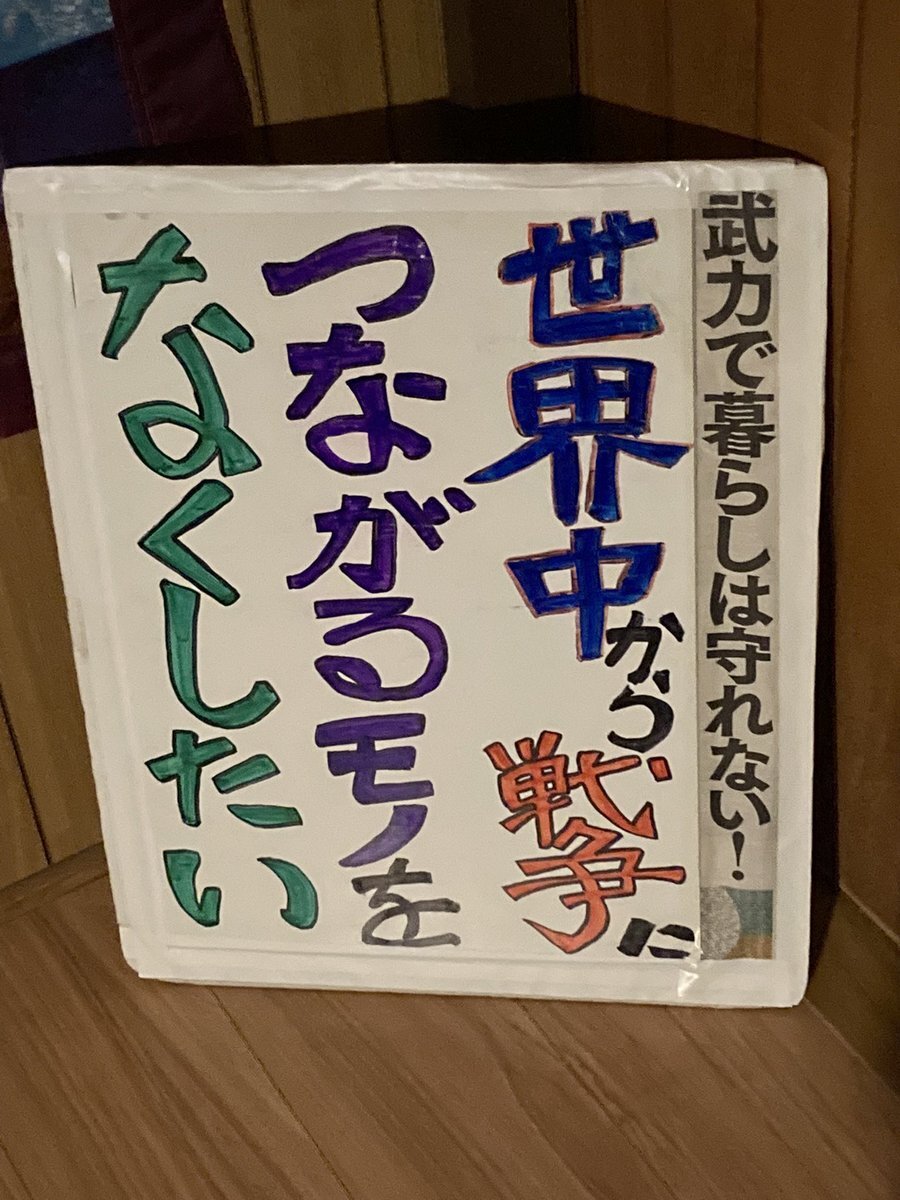 武力で暮らしは守れない!
世界中から戦争に
つながるモノを
なくしたい